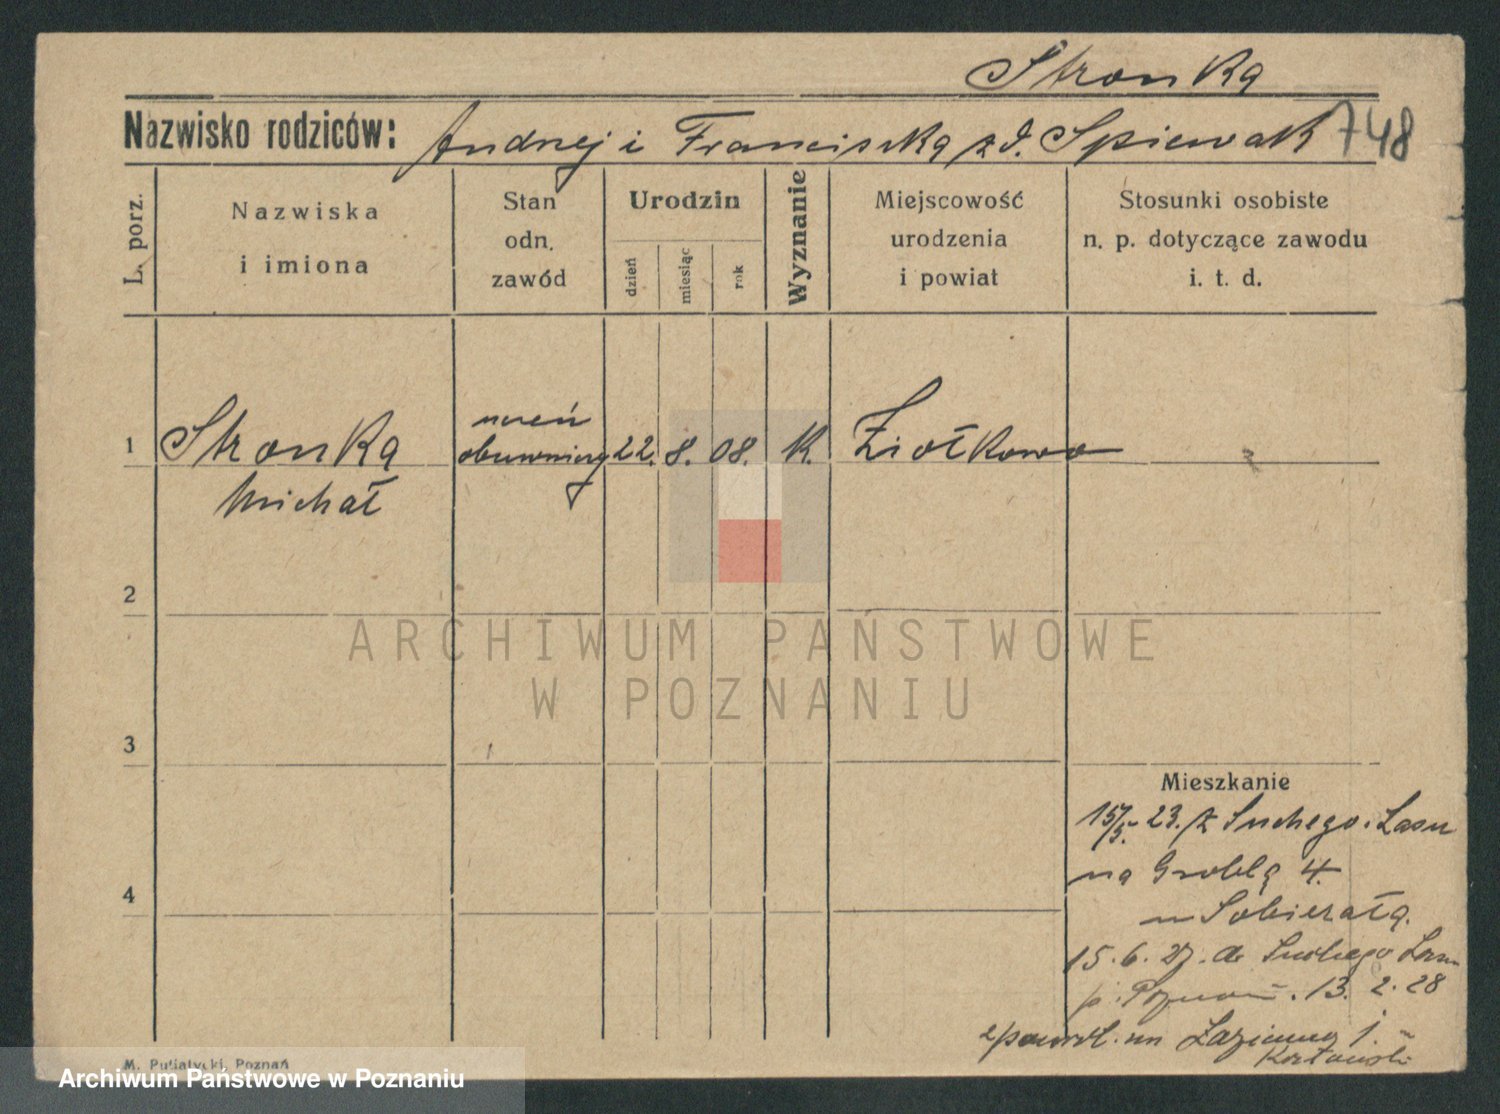 Stronka
Nazwisko rodziców: Andrzej i Franciszka z d. Śpiewak 748
L. porz.
Nazwiska
i imiona
Stan
odn.
zawód
Urodzin
dzień
miesiąc
rok
Wyznanie
Miejscowość
urodzenia
i powiat
Stosunki osobiste
n. p. dotyczące zawodu
i. t. d.
1 Stronka
Michał
uczeń
obuwniczy 22. 8. 08. K. Ziołkowo
2
3
4
Mieszkanie
15/5. 23. z Suchego Lasu
na Groblą 4.
u Sobierałą.
15. 6. 27. do Suchego Lasu
p. Poznań. 13. 2. 28
z powrt. na Łazienną 1.
Kozłowski
M. Putiatycki, Poznań
ARCHIWUM PAŃSTWOWE
W POZNANIU
Archiwum Państwowe w Poznaniu